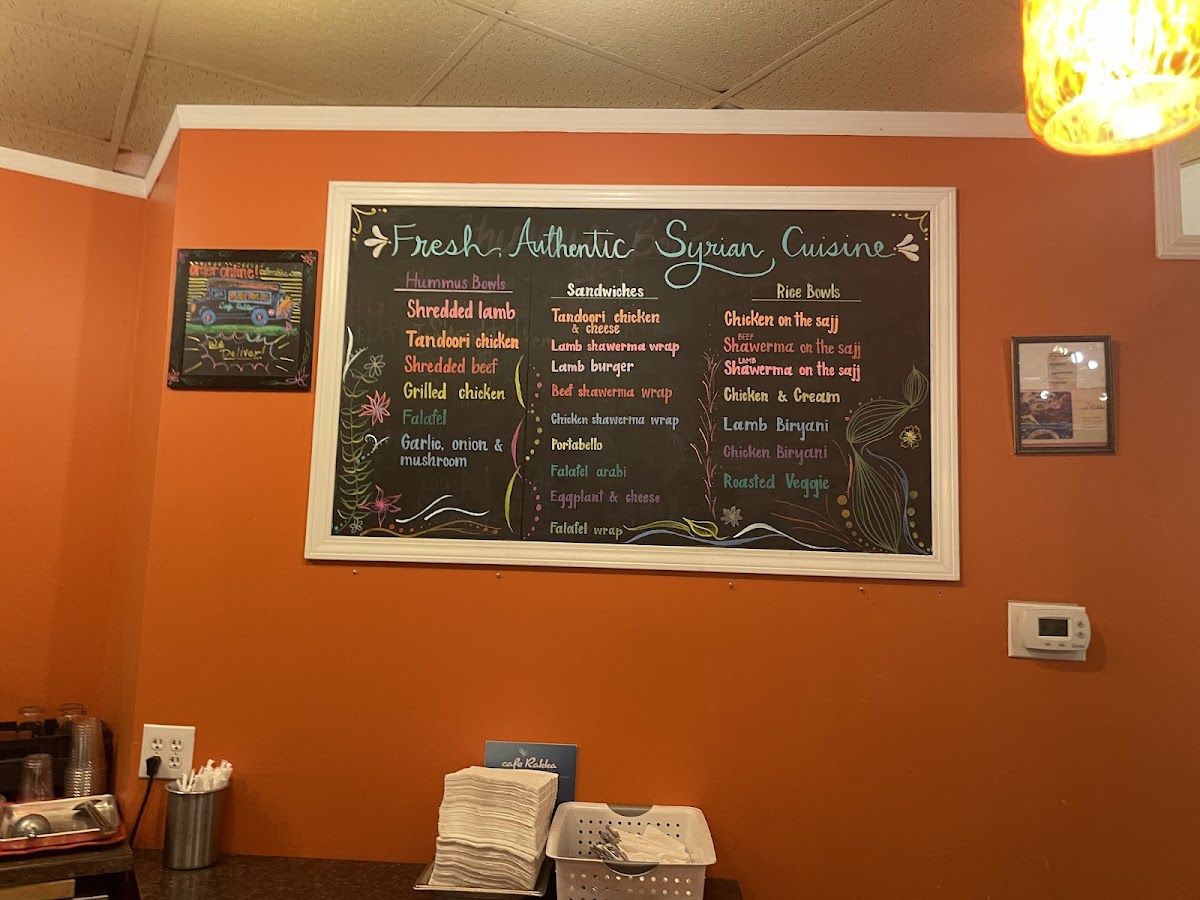 Fresh, Authentic Syrian Cuisine
Hummus Bowls
Shredded lamb
Tandoori chicken
Shredded beef
Grilled chicken
Falafel
Garlic, onion &
mushroom
Sandwiches
Tandoori chicken
& cheese
Lamb shawerma wrap
Lamb burger
Beef shawerma wrap
Chicken shawerma wrap
Portabello
Falafel arabi
Eggplant & cheese
Falafel wrap
Rice Bowls
Chicken on the sajj
BEEF
Shawerma on the sajj
LAMB
Shawerma on the sajj
Chicken & Cream
Lamb Biryani
Chicken Biryani
Roasted Veggie
order online!
Cafe Rakka
We
Deliver!
cafe Rakka